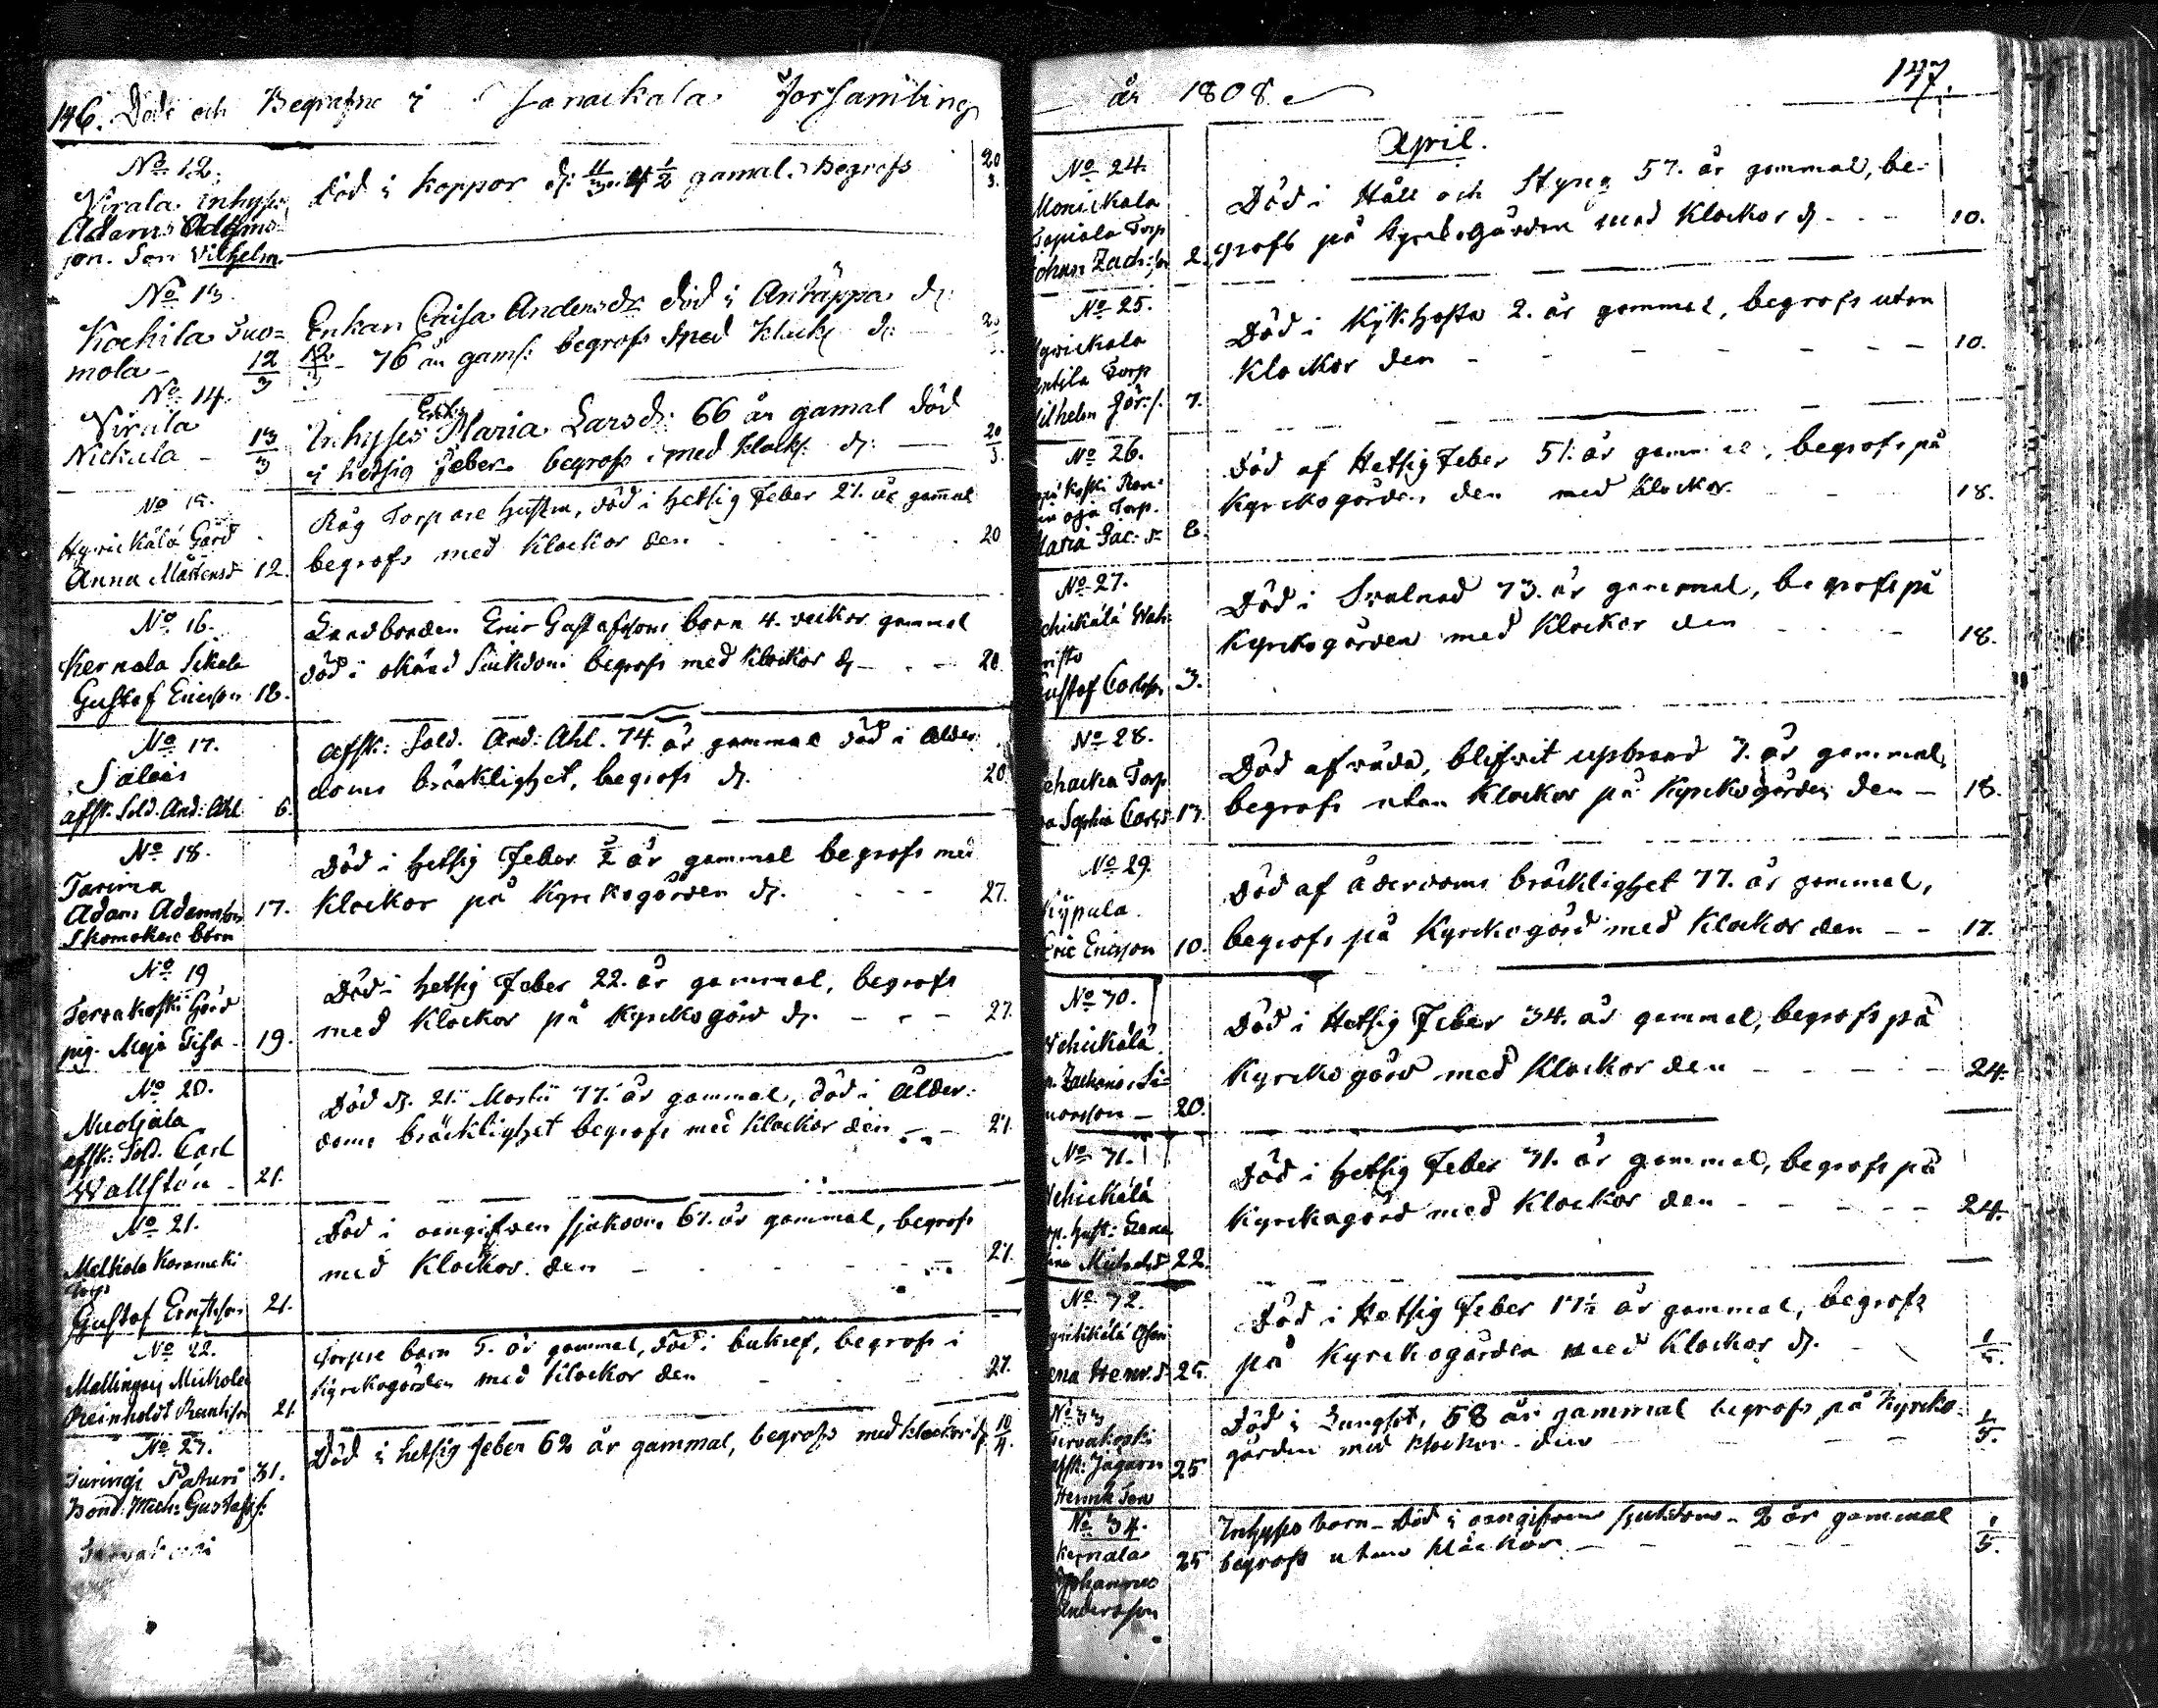 146. Döde och Begrafne i Janackala Församling
No 12.
Virala inhyses
Adam Adams
son. Son Vilhelm
Död i koppor d: 11/3 4 1/2 gamal. Begrofs 20/3.
No 13.
Kackila Suo=
mola - 12/3
Enkan Caisa Andersdr död i Andtäppa d:
12/3 - 76 år gaml: begrofs med klock d: 20/3.
No 14.
Virala
Nickula - 13/3
Inhyses Enk. Maria Larsd: 66 år gamal död
i hetsig feber begrofs med klock: d: - 20/3.
No 15.
Hyrickälä Gård
Anna Mårtensd 12.
Råg Torpare hustru, död i hetsig Feber 27. år gamal
begrofs med klockor den 20
No 16.
Kernala Sikala
Gustof Ericson 18.
Landbonden Eric Gustafsons barn 4. veckor gammal
död i okänd Siukdom begrofs med klockor d. - 20.
No 17.
Sälois
afsk. Sold. And: Ahl 6.
afsk: Sold. And: Ahl. 74. år gammal död i Ålder
doms bräcklighet, begrofs d. 20
No 18.
Tarina
Adam Adamson 17.
Skomakare barn
Död i hetsig Feber 3/2 år gammal begrofs med
Klockor på Kyrckogården d. - - - 27.
No 19
Tervakoski Gård
pig. Maja Lisa 19.
Död i hetsig Feber 22. år gammal, begrofs
med Klockor på Kyrckogård d. - - - 27.
No 20.
Nuoljala
afsk: Sold. Carl
Wallstén - 21.
Död d. 21. Martii 77. år gammal, död i Ålder:
doms bräcklighet begrofs med klockor den - - 27.
No 21.
Melkola Koramäki
Torp
Gustof Ernstson 21.
Död i oangifven sjukdom 67. år gammal, begrofs
med Klockor den - - - 27.
No 22.
Mallinoinen Mickola
Reinholdt 21.
Torpare barn 5. år gammal, död i bukref, begrofs i
Kyrckogården med klockor den 27.
No 23.
Turingi Paturi 31.
Bond: Mich: Gustafs:
Död i hetsig feber 62 år gammal, begrofs med klockor d. 10/4.
år 1808. 147.
April.
No 24.
Monickala
Tapiola Torp
Johan Zach:son 2.
Död i Håll och Styng 57. år gammal, be-
grofs på Kyrckogården med Klockor d. - - - 10.
No 25.
Hyrickala
Antila Torp
Vilhelm Jör:s. 7.
Död i Kjkhosta 2. år gammal, begrofs utan
Klockor den - - - - - - 10.
No 26.
Torp.
Maria Jac: dr 6.
Död af Hetsig Feber 51. år gammal, begrofs på
Kyrckogården den med Klockor. - - 18.
No 27.
Gustof Carlsson 3.
Död i Svalnad 73. år gammal, begrofs på
Kyrckogården med Klockor den - - 18.
No 28.
Torp
Sophia Carlsd. 13.
Död af våda, blifvit upbrend 7. år gammal,
begrofs utan Klockor på Kyrckogården den - 18.
No 29.
Kÿpula.
Eric Ericsson 10.
Död af åderdoms bräcklighet 77. år gammal,
begrofs på Kyrckogård med Klockor den - - 17.
No 30.
Zacharias Si-
monsson - 20.
Död i Hetsig Feber 34. år gammal, begrofs på
Kyrckogård med Klockor den - - - - 24.
No 31.
hust: Lena
Michelsd 22.
Död i hetsig Feber 31. år gammal, begrofs på
Kyrckogård med Klockor den - - - - - 24.
No 32.
Lena Henr.d. 25.
Död i Hetsig Feber 17½ år gammal, begrofs
på Kyrckogården med Klockor d. - 1/5.
No 33
Tervakoski
afsk: Jägarn 25
Henrik Fon
Död i Lungsot, 58 år gammal begrofs på Kyrcko-
gården med klockor den - - 1/5.
No 34.
Kernala 25
Johannes
Andersson
Inhyses barn - död i oangifven sjukdom - 2 år gammal
begrofs utan klockor - - - - 1/5.